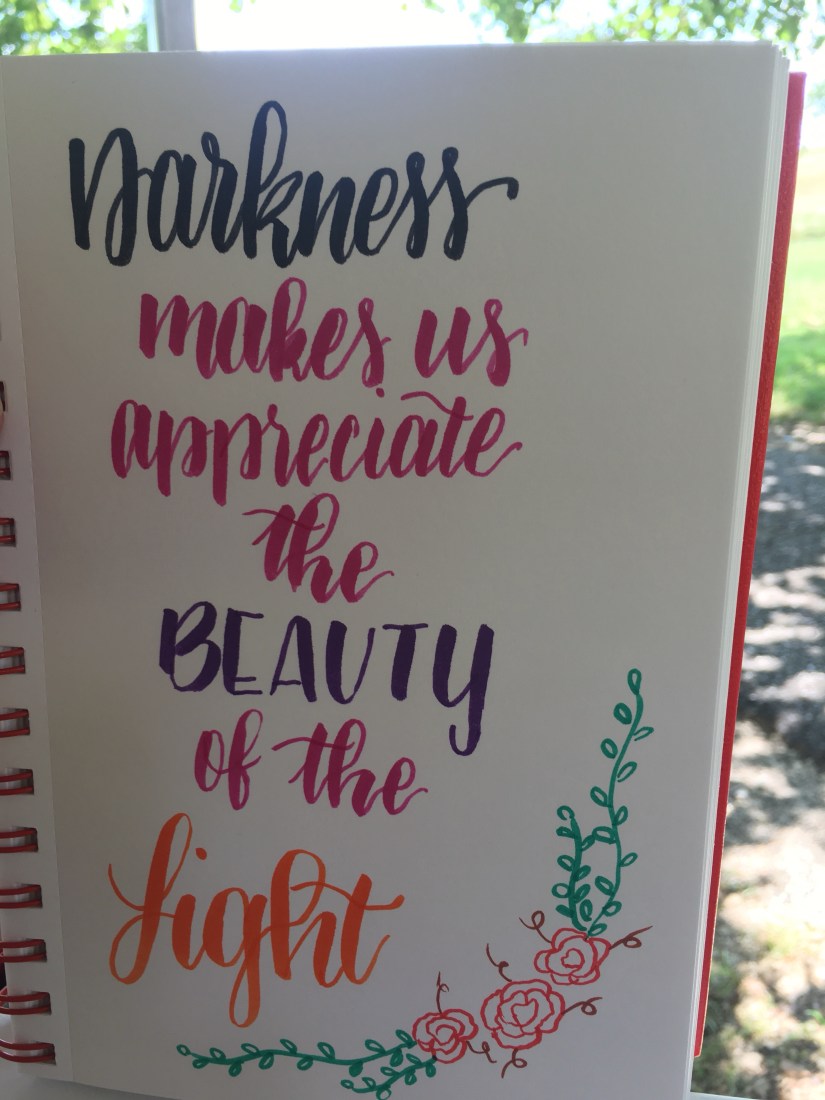 Darkness
makes us
appreciate
the
BEAUTY
of the
Light